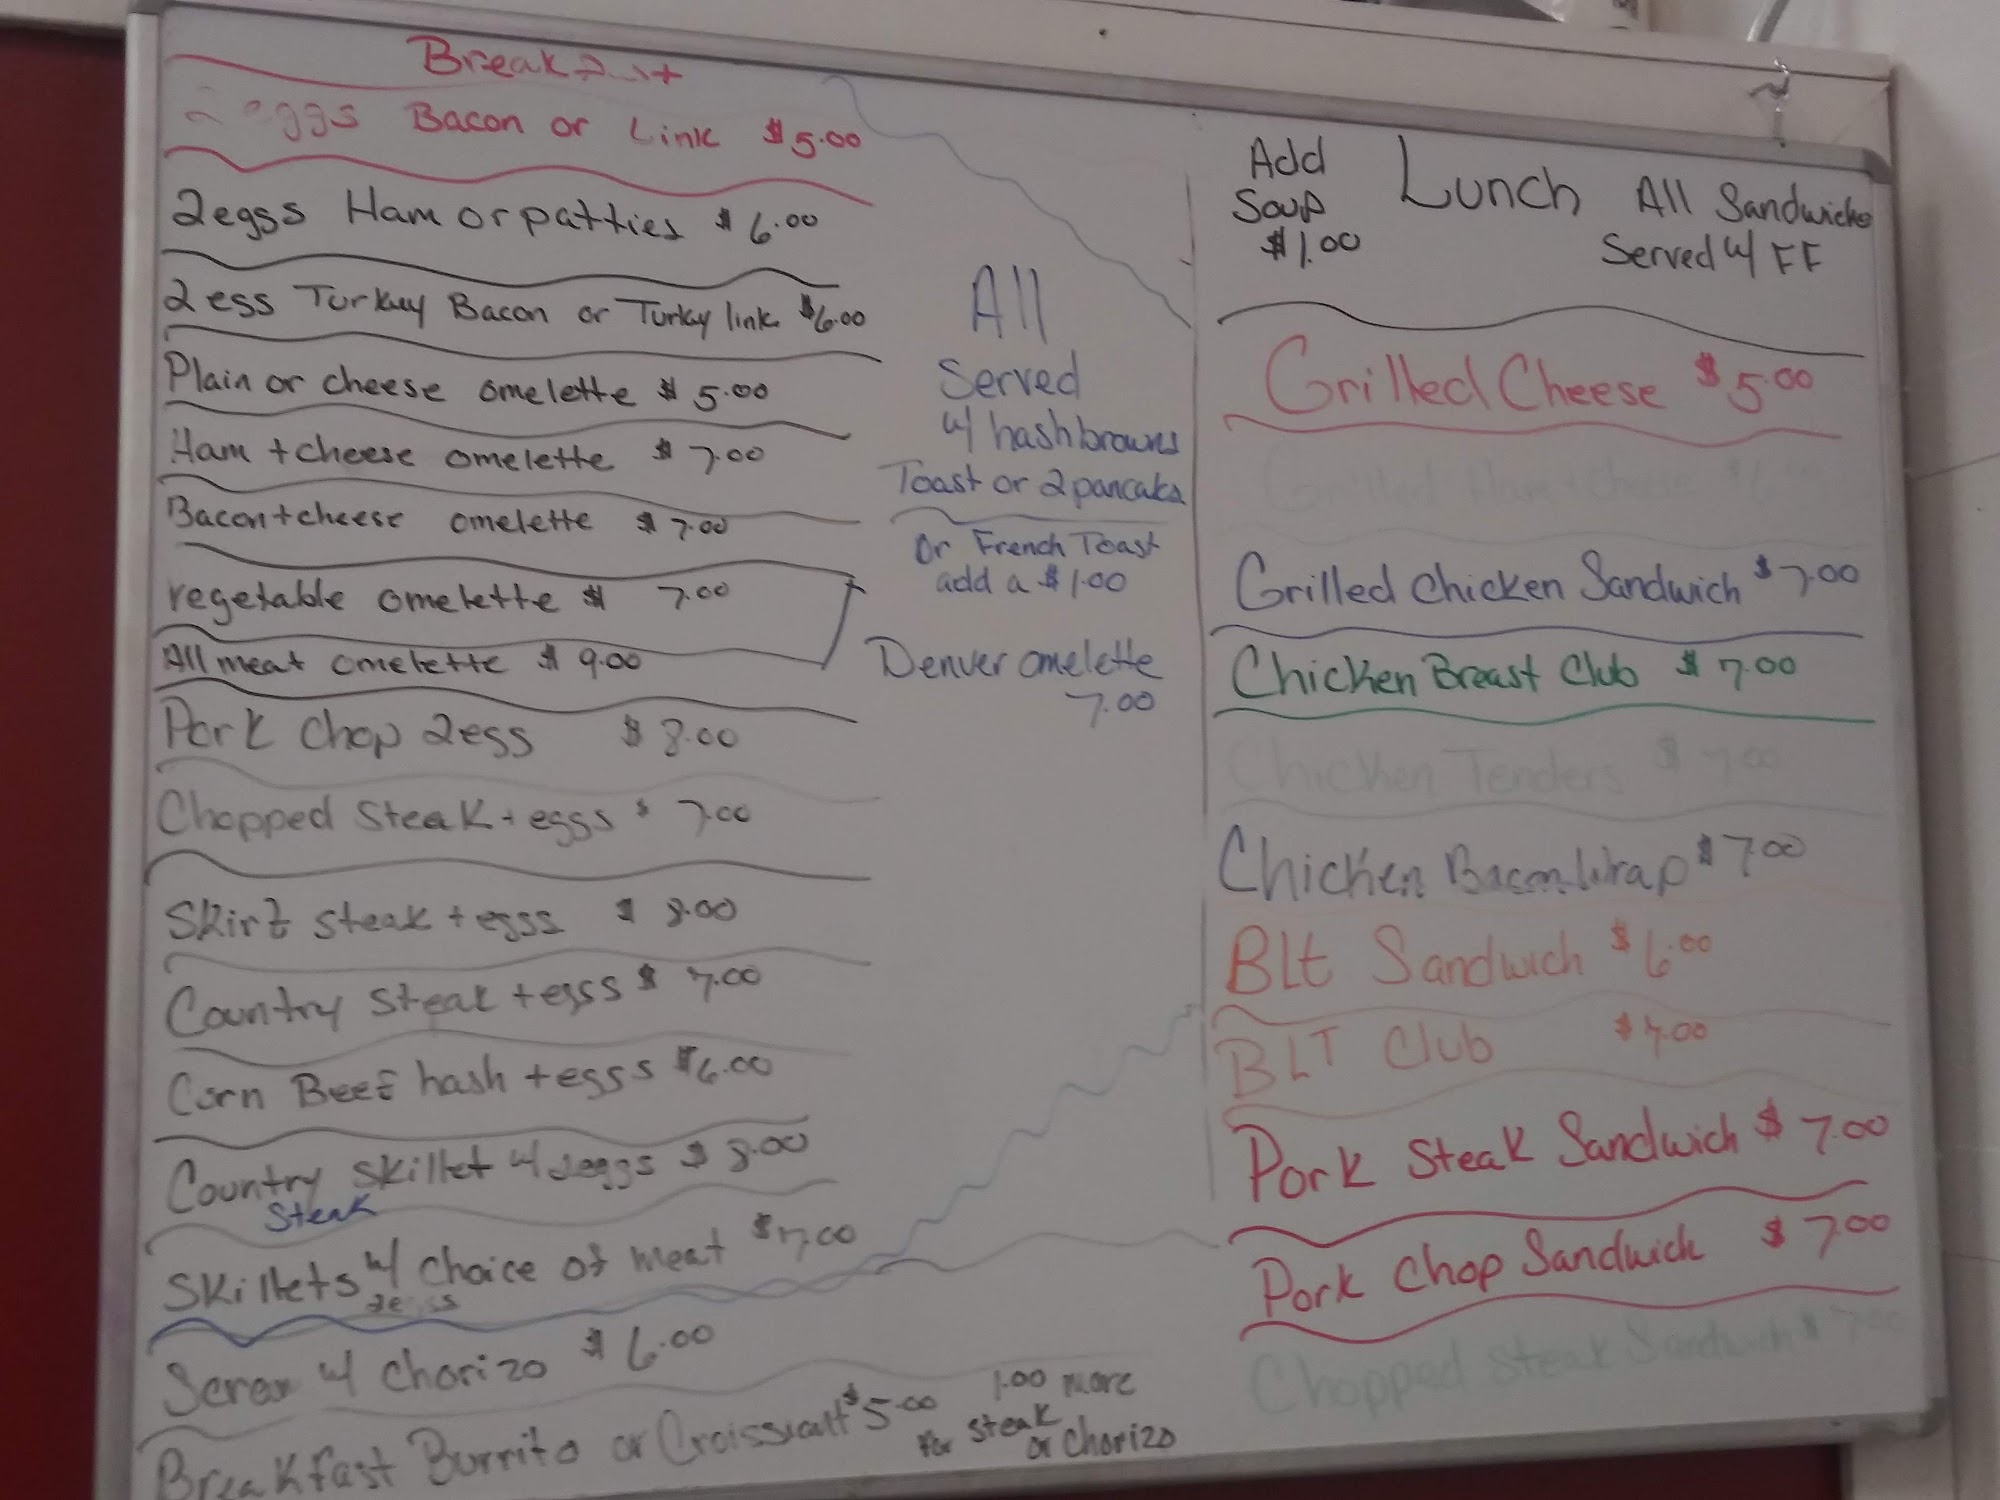 Breakfast
2 eggs Bacon or Link $5.00
2egss Ham or patties $6.00
2 ess Turkuy Bacon or Turky link $6.00
Plain or cheese omelette $5.00
Ham + cheese omelette $7.00
Bacon + cheese omelette $7.00
vegetable omelette $ 7.00
All meat omelette $9.00
Pork Chop 2ess $8.00
Chopped Steak + eggs $7.00
Skirt steak + egss $8.00
Country Steak + egss $7.00
Corn Beef hash + egss $6.00
Country Skillet w/ 2eggs $8.00
Steak
Skillets w/ Choice of meat $7.00
w/ Chorizo $6.00
Breakfast Burrito or $5.00
1.00 more
for steak
or Chorizo
All
Served
w/ hashbrowns
Toast or 2 pancaks
Or French Toast
add a $1.00
Denver omelette
7.00
Add
Soup
$1.00
Lunch
All Sandwichs
Served w/ FF
Grilled Cheese $5.00
Grilled Ham + cheese
Grilled Chicken Sandwich $7.00
Chicken Breast Club $7.00
Chicken Tenders $7.00
Chicken Bacon Wrap $7.00
BLt Sandwich $6.00
BLT Club $7.00
Pork Steak Sandwich $7.00
Pork Chop Sandwich $7.00
Chopped Steak Sandwich $7.00